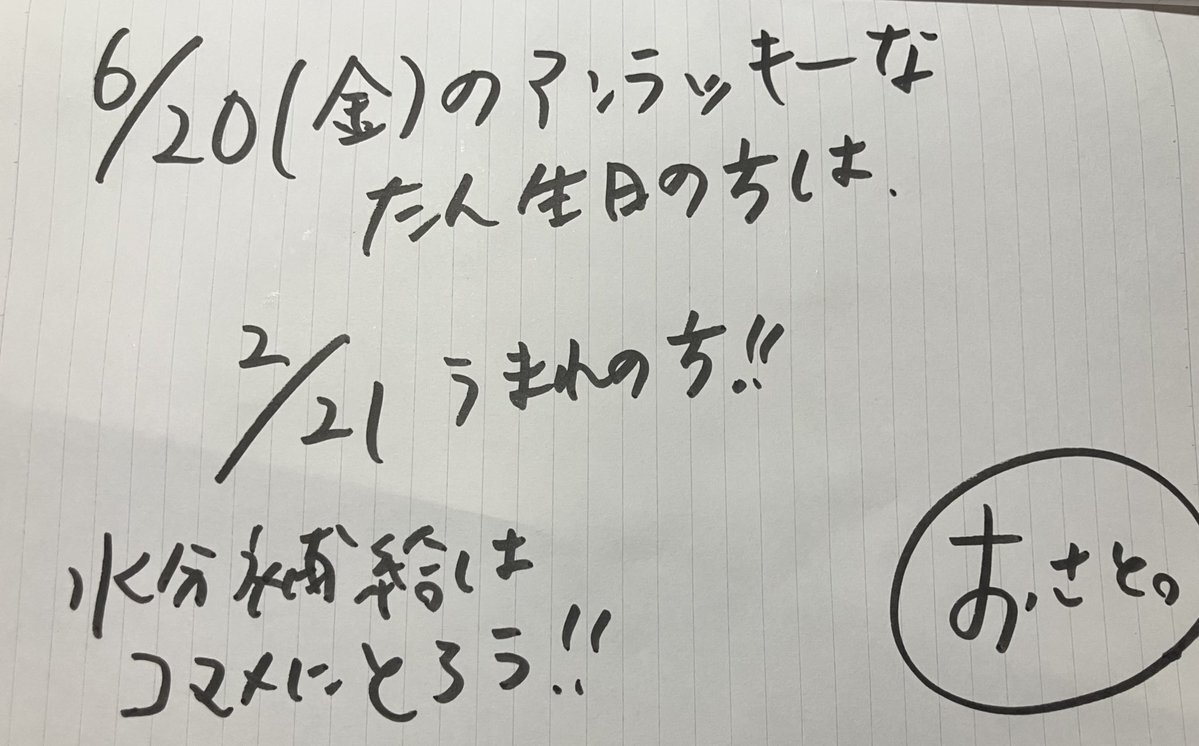 6/20(金)のアンラッキーな
たん生日の方は、
2/21 うまれの方!!
水分補給は
コマメにとろう!!
おさとの